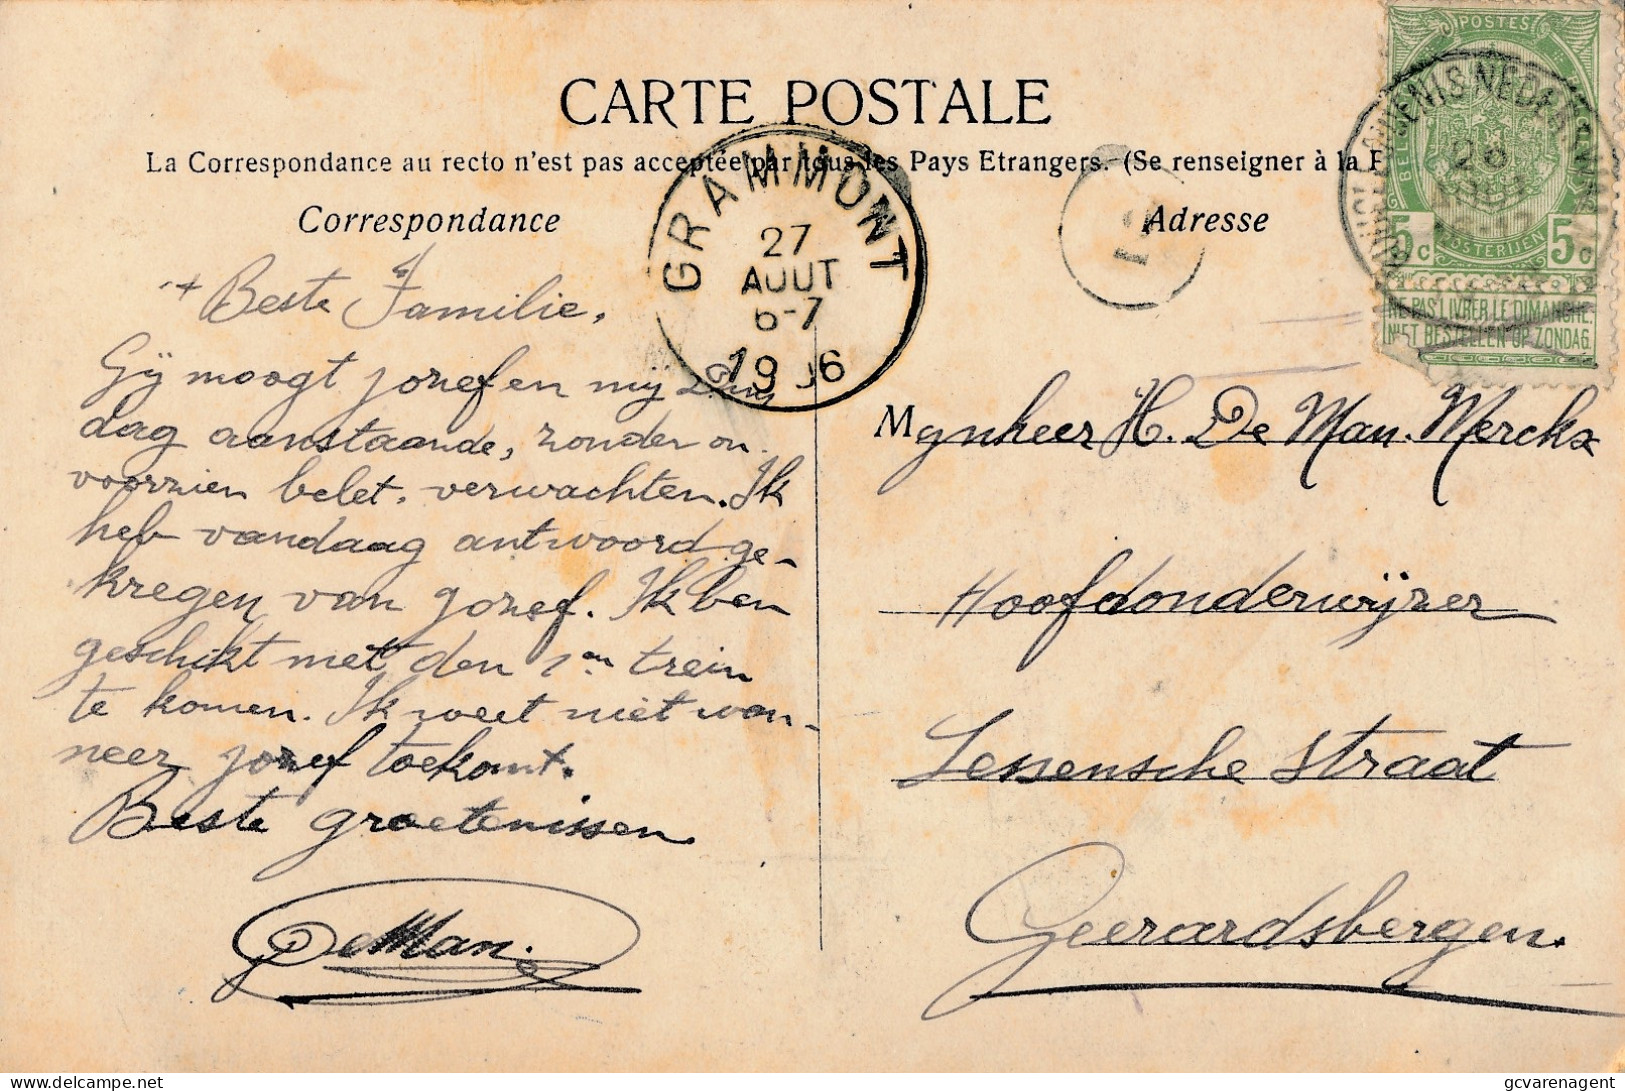 CARTE POSTALE
La Correspondance au recto n'est pas acceptée par tous les Pays Etrangers. (Se renseigner à la
Correspondance
Adresse
GRAMMONT
27
AOUT
6-7
19 06
POSTES
28
5c POSTERIJEN 5c
NE PAS LIVRER LE DIMANCHE.
NIET BESTELLEN OP ZONDAG.
Beste Familie,
Gij moogt Jozef en mij Zon
dag aanstaande, zonder on
voorzien belet, verwachten. Ik
heb vandaag antwoord ge-
kregen van Jozef. Ik ben
geschikt met den 1en trein
te komen. Ik weet niet wan-
neer Jozef toekomt.
Beste groetenissen
De Man.
Mynheer H. De Man-Merckx
Hoofdonderwijzer
Lessensche straat
Geerardsbergen.
gcvarenagent
delcampe.net